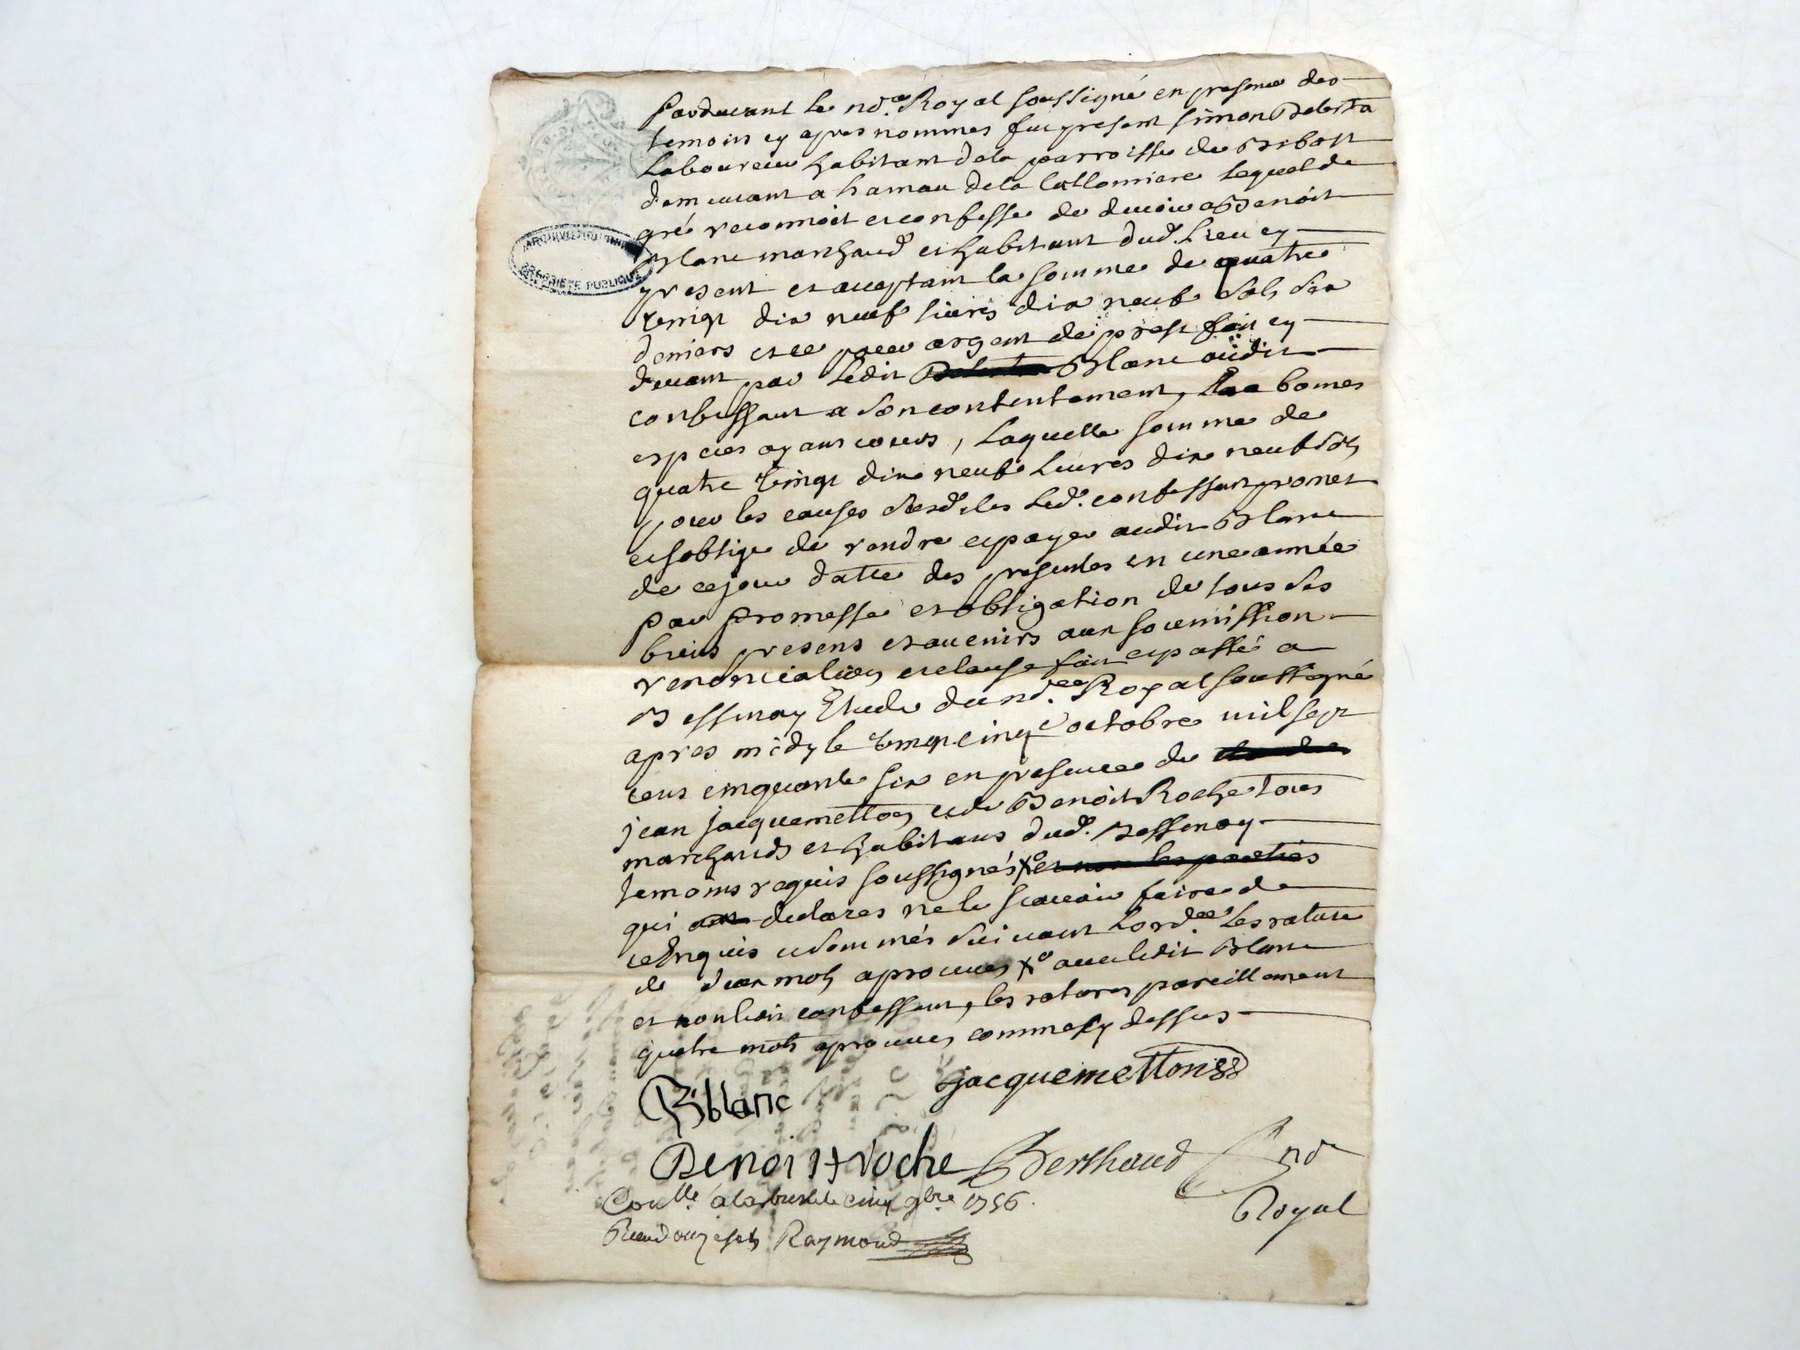 Pardevant le no.re Royal soussigné en presence des
temoins cy apres nommes fut present Simon Delorta
Laboureur habitant dela parroisse de Bibost
demeurant a hamau dela Lequel de
gré reconnoit et confesse de devoir a Benoit
Blanc marchand et habitant dud. Lieu cy
present et acceptant la somme de quatre
vingt dix neuf livres dix neuf sols six
deniers et ce pour argent de prest fait cy
devant par Ledit Blanc audit
confessant a son contentement, bonnes
especes ayant cours, Laquelle somme de
quatre vingt dix neuf livres dix neuf sols
pour les causes susd.es led. confessant promet
et soblige de rendre et payer audit Blanc
de ce jour datte des presentes en une année
par promesse et obligation de tous ses
biens presens et avenirs aux soumission
renonciation et clause fait et passé a
Bessenay Etude du no.re Royal soussigné
apres midy le vingt cinq octobre mil sept
cens cinquante six en presence de
jean jacquemetton et de Benoit Roche tous
marchands et habitans dud. Bessenay
temoins requis soussignés et non les parties
qui ont declarés ne le scavoir faire de
ce Enquis et sommés suivant Lord.ce Les rature
de deux mots aprouvés avec ledit Blanc
et non ledit confessant, les ratures pareillement
quatre mots aprouvés comme cy dessus
B blanc
jacquemetton
Benoit roche Berthaud no.re
Royal
Con.llé a Larbresle cinq 9bre 1756.
Raymond
PROPRIETE PUBLIQUE